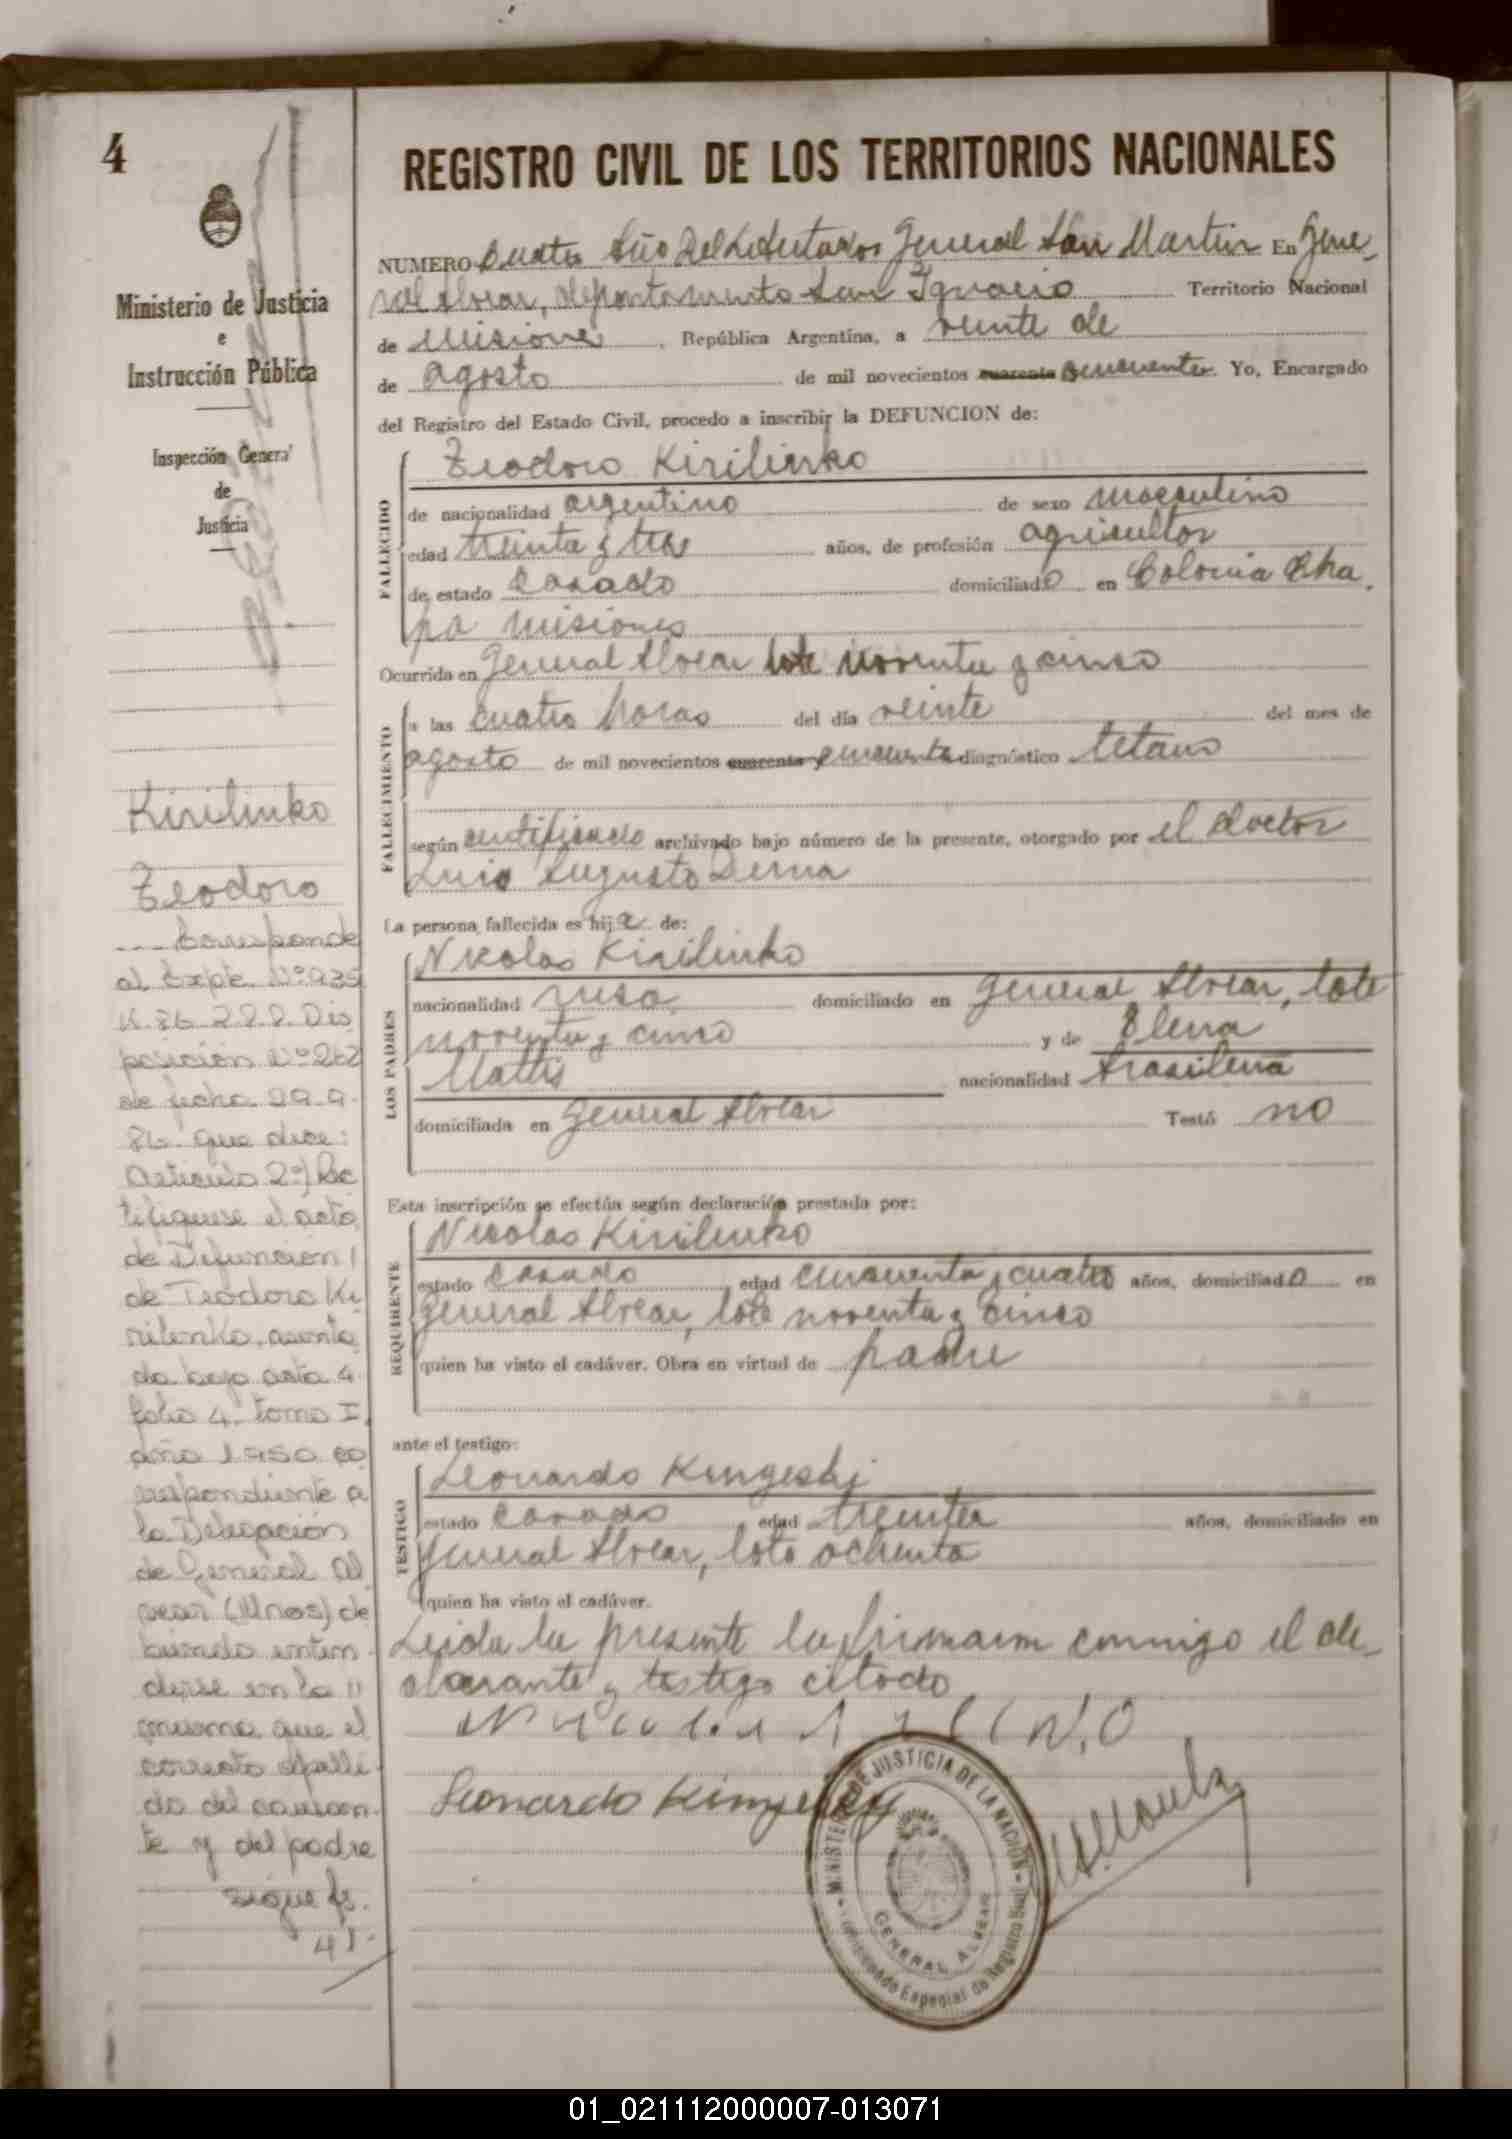 4
REGISTRO CIVIL DE LOS TERRITORIOS NACIONALES
Ministerio de Justicia
e
Instrucción Pública
Inspección General
de
Justicia
NUMERO Cuatro Año Del Libertador General San Martin En Gene
ral Alvear, departamento San Ignacio Territorio Nacional
de Misiones, República Argentina, a veinte de
de agosto de mil novecientos cuarenta cincuenta. Yo, Encargado
del Registro del Estado Civil, procedo a inscribir la DEFUNCION de:
FALLECIDO
Teodoro Kirilinko
de nacionalidad argentino de sexo masculino
edad treinta y tres años, de profesión agricultor
de estado casado domiciliado en Colonia Cha
pa Misiones
Ocurrida en General Alvear lote noventa y cinco
FALLECIMIENTO
a las cuatro horas del día veinte del mes de
agosto de mil novecientos cuarenta y cincuenta diagnóstico tetano
según certificado archivado bajo número de la presente, otorgado por el doctor
Luis Augusto Derna
La persona fallecida es hijo de:
LOS PADRES
Nicolas Kirilinko
nacionalidad rusa domiciliado en General Alvear, lote
noventa y cinco y de Elena
Mattis nacionalidad brasilena
domiciliada en General Alvear Testó no
Esta inscripción se efectúa según declaración prestada por:
REQUIRENTE
Nicolas Kirilinko
estado casado edad cincuenta y cuatro años, domiciliado en
General Alvear, lote noventa y cinco
quien ha visto el cadáver. Obra en virtud de padre
ante el testigo:
TESTIGO
Leonardo Kingeski
estado casado edad treinta años, domiciliado en
General Alvear, lote ochenta
quien ha visto el cadáver.
Leida la presente la firmaron conmigo el de
clarante y testigo citado
Leonardo
MINISTERIO DE JUSTICIA DE LA NACION
GENERAL ALVEAR
Kirilinko
Teodoro
--- Corresponde
al Expte. Nº 935
K. 86 Dis
posición Nº 262
de fecha 29.9.
86. que dice:
Articulo 2º) Rec
tifiquese el acta
de Defunción
de Teodoro Ki
rilenko, asenta
da bajo acta 4
folio 4. tomo I,
año 1950 co
rrespondiente a
la Delegación
de General Al
vear (Mnes) de
biendo enten
derse en la
misma que el
correcto apelli
do del causan
te y del padre
sigue fs.
41.
01_021112000007-013071